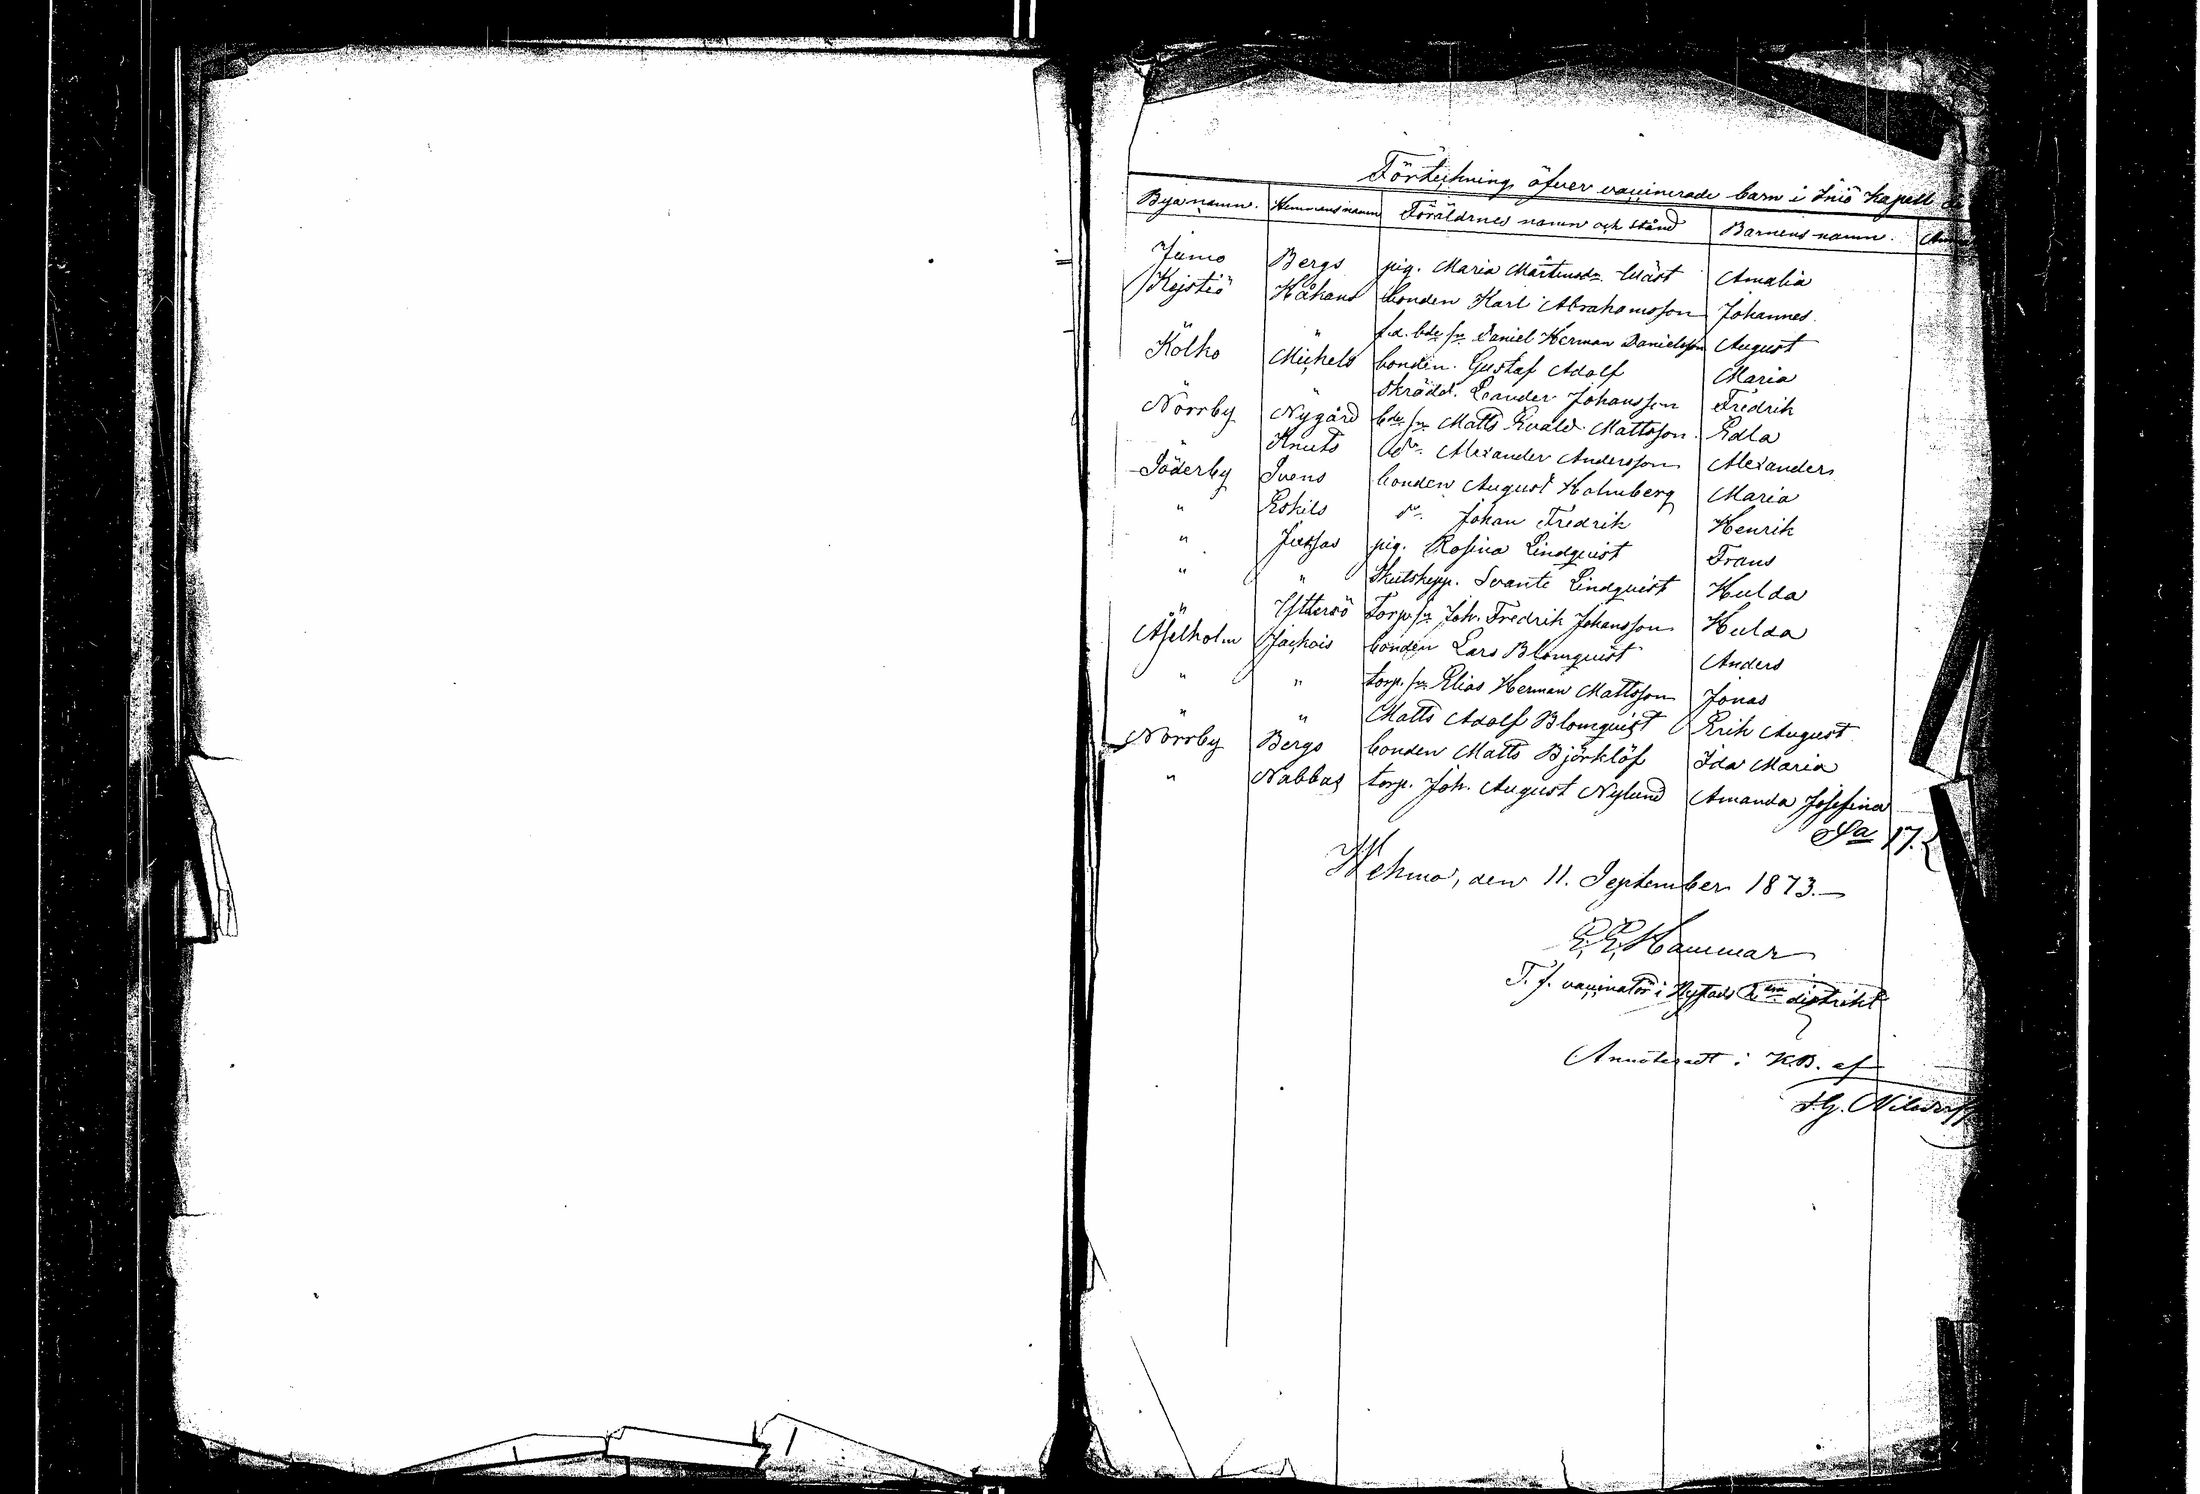 Förteckning öfver vaccinerade barn i Iniö Kapell
Byanamn. Hemmansnamn Föräldrnes namn och stånd Barnens namn.
Jumo Bergs pig. Maria Mårtensdr Wäst Amalia
Kejstiö Håkans bonden Karl Abrahamsson Johannes
" " f.d. bde sn Daniel Herman Danielsson August
Kolko Michels bonden Gustaf Adolf Maria
" " Skrädd. Leander Johansson Fredrik
Norrby Nygård bde sn Matts Evald Mattsson Edla
Knuts do Alexander Andersson Alexander
Söderby Svens bonden August Holmberg Maria
" Eskils do Johan Fredrik Henrik
" Jussas pig. Rosina Lindqvist Frans
" " Skutskepp. Svante Lindqvist Hulda
" Ytterö Torp. sn Joh. Fredrik Johansson Hulda
Åselholm Jackois bonden Lars Blomquist Anders
" " torp. sn Elias Herman Mattsson Jonas
" " Matts Adolf Blomquist Erik August
Norrby Bergs bonden Matts Björklöf Ida Maria
" Nabbas torp. Joh. August Nylund Amanda Josefina
Sa 17.
Wehmo, den 11. September 1873.
E. E. Hammar
T. f. vaccinatör i Nystads distrikt
Annoteradt i K.B. af